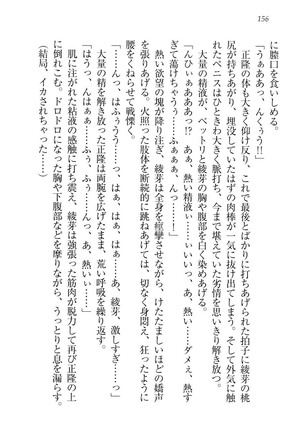 156
に膣口を食いしめる。
「うぁああっ、んくぅう!!」
正隆の体も大きく仰け反り、これで最後とばかりに打ちあげられた拍子に綾芽の桃
尻が持ちあがり、埋没していたはずの肉棒が一気に抜け出てしまう。そして外気に触
れたペニスはひときわ大きく脈打ち、今まで堪えていた劣情を思いきり解き放つ。
大量の精液が、ベットリと綾芽の胸や腹部を白く染めあげる。
「んひぃぁあああっ!? あ、熱い精液ぃ……いぃぃっ、あ、熱い……ダメぇ、熱す
ぎて蕩けちゃうぅ……ふぁぁぁぁ、んっ……!」
熱い欲望の塊が降り注ぎ、綾芽は全身を痙攣させながら、けたたましいほどの嬌声
を張りあげる。火照った肢体を断続的に跳ねあげては、切なく身悶え、狂ったように
腰をくねらせて戦慄く。
「……んっ、はふぅうう……っ、はぁ、はぁっ、あ、綾芽、激しすぎ……っ」
「はうっ、んはぁぁ……ふぅ、ふぅ……んっ、あ、熱いぃ……」
大量の精を解き放った正隆は両腕を広げたまま、荒い呼吸を繰り返す。
肌に注がれた粘液の感触に打ち震え、綾芽は強張った筋肉が脱力して再び正隆の上
に倒れこむ。ドロドロになった胸や下腹部などを摩りながら、うっとりと息を漏らす。
(結局、イカされちゃった……)